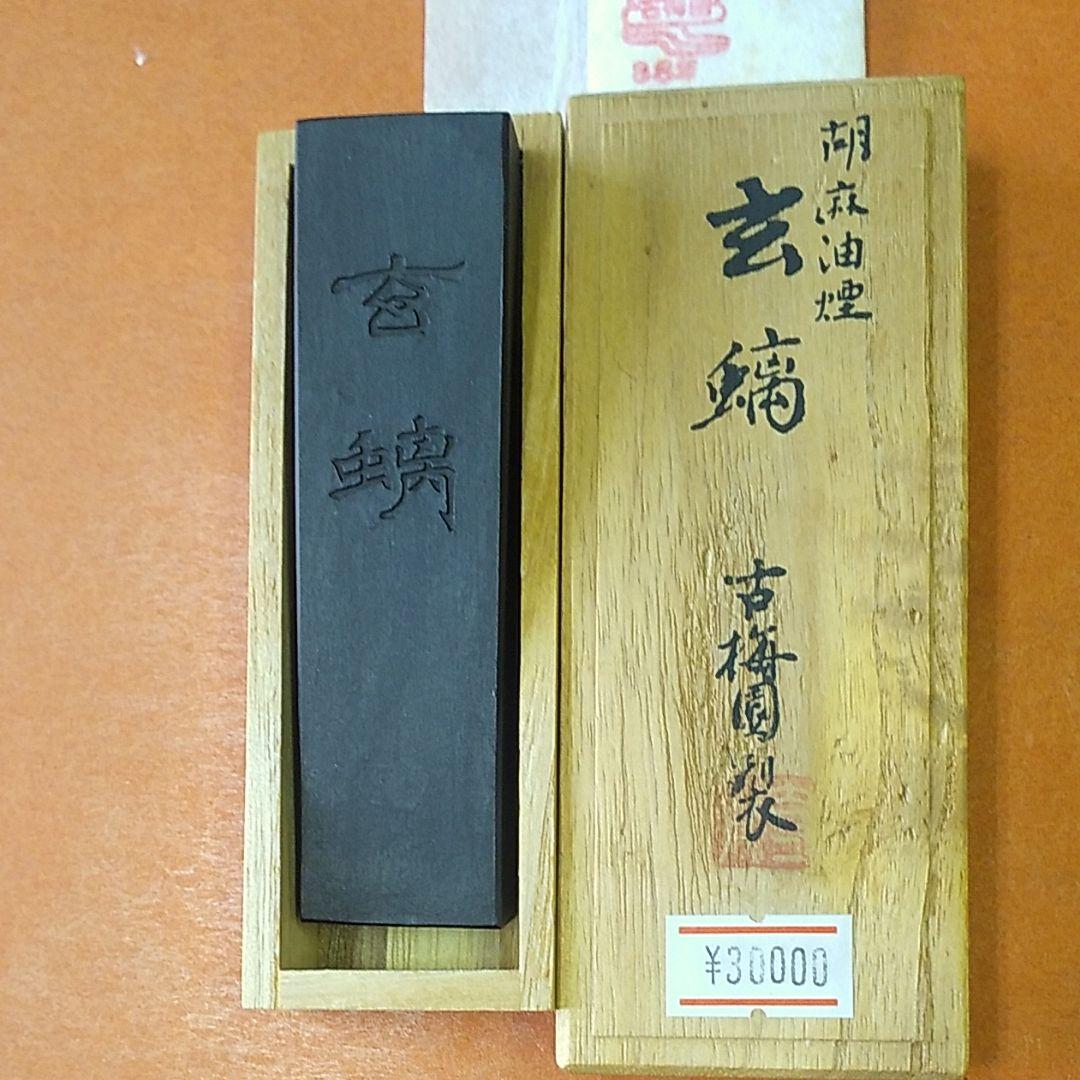 胡麻油煙
玄螭
古梅園製
玄螭
¥30000